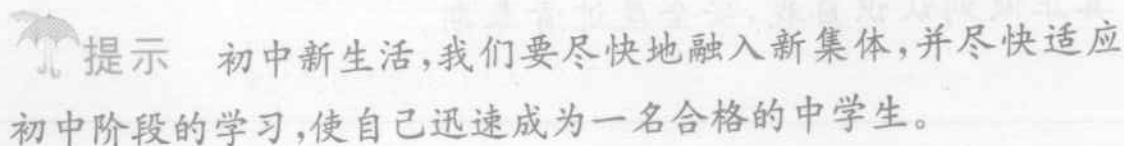 提示 初中新生活,我们要尽快地融入新集体,并尽快适应
初中阶段的学习,使自己迅速成为一名合格的中学生。